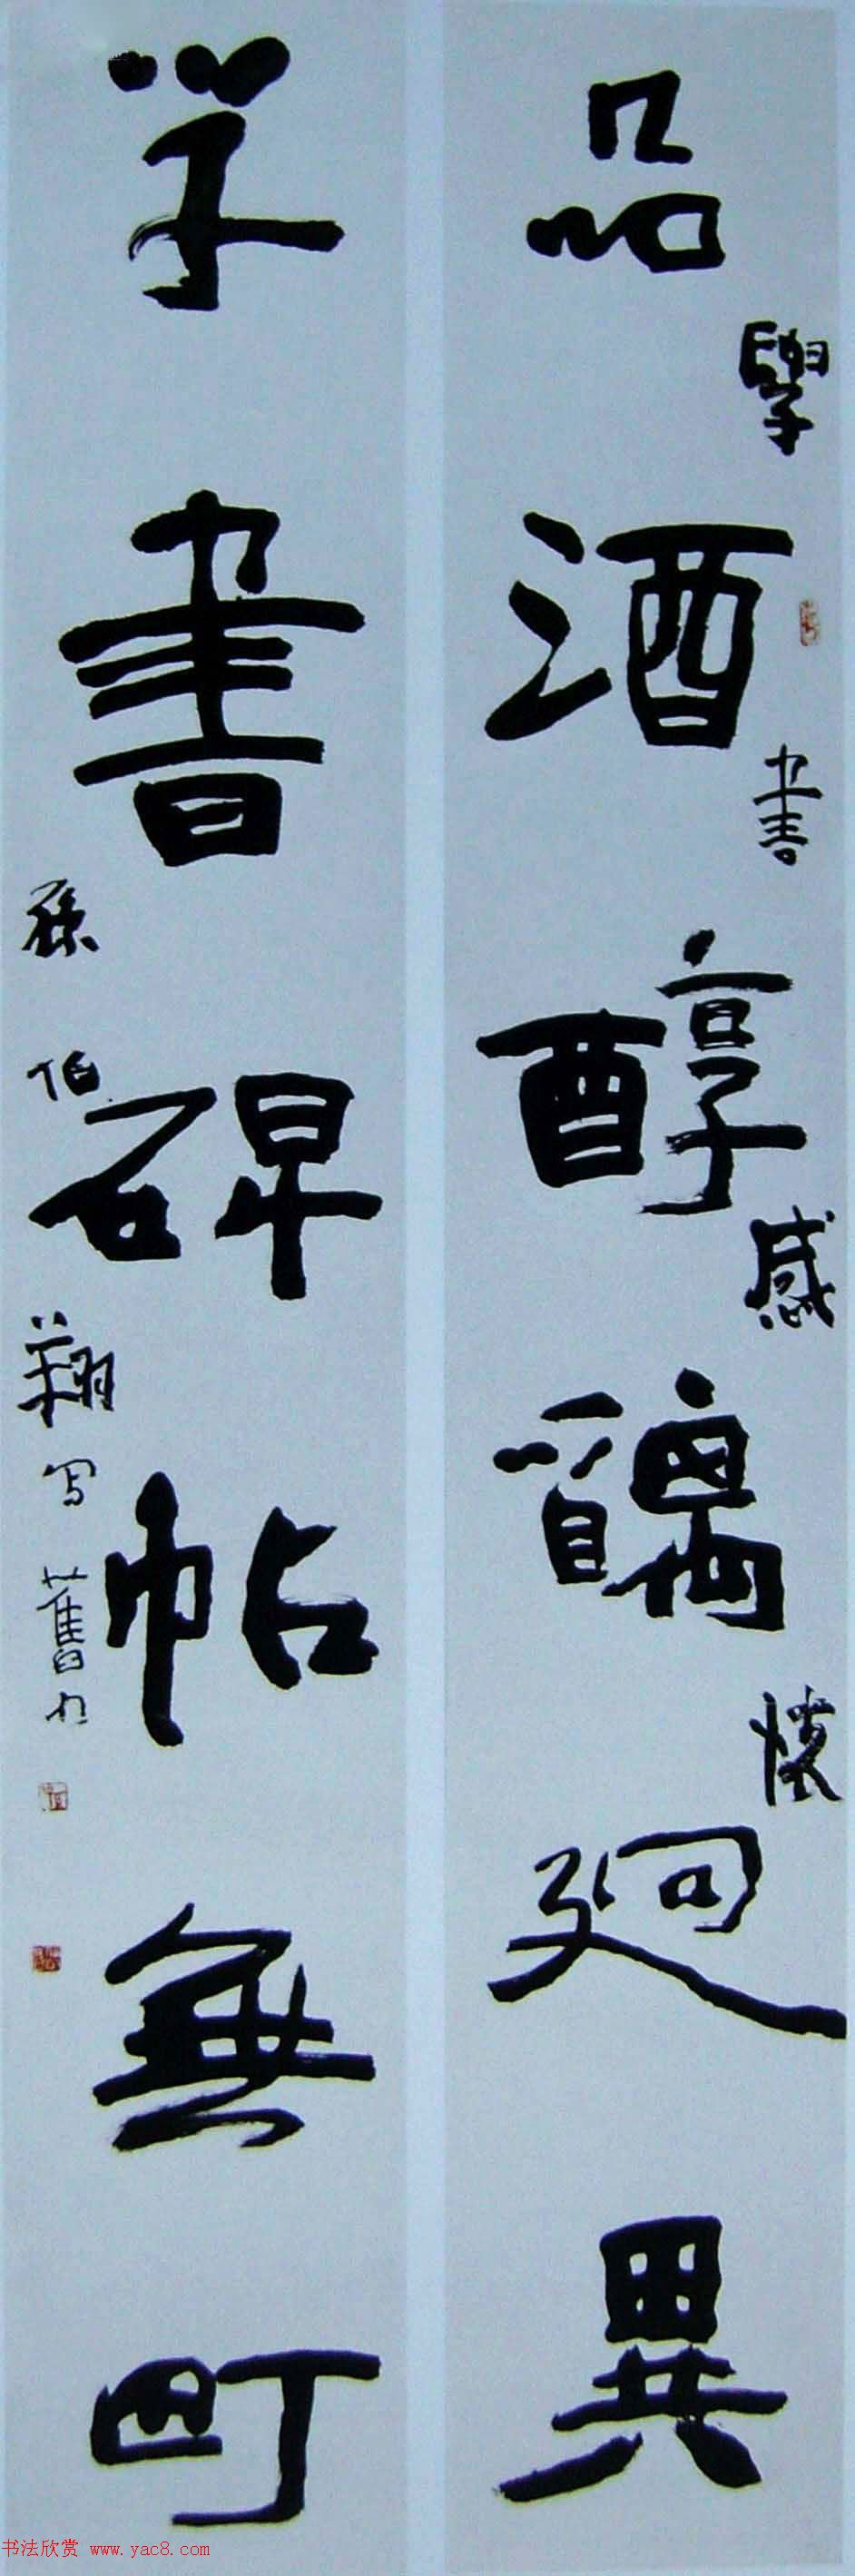 品酒醇醨迥異
學書感懷
学書碑帖無町
孫伯翔写舊句
书法欣赏 www.yac8.com